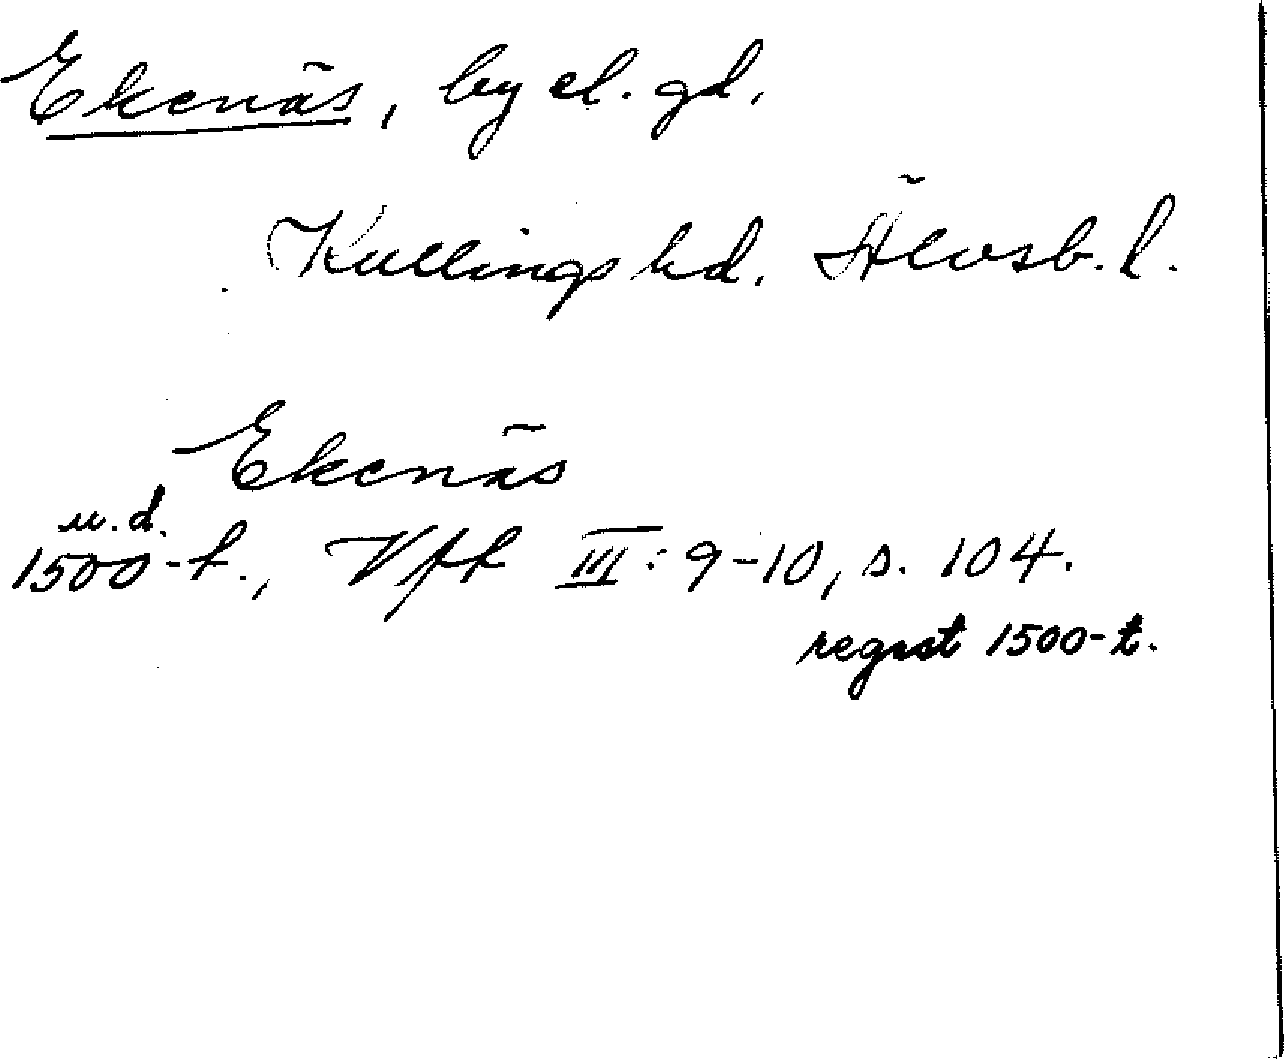 Ekenäs, by el. gd.
Kullings hd. Älvsb. l.
Ekenäs
u. d.
1500-t., Vft III: 9-10, s. 104.
regest 1500-t.